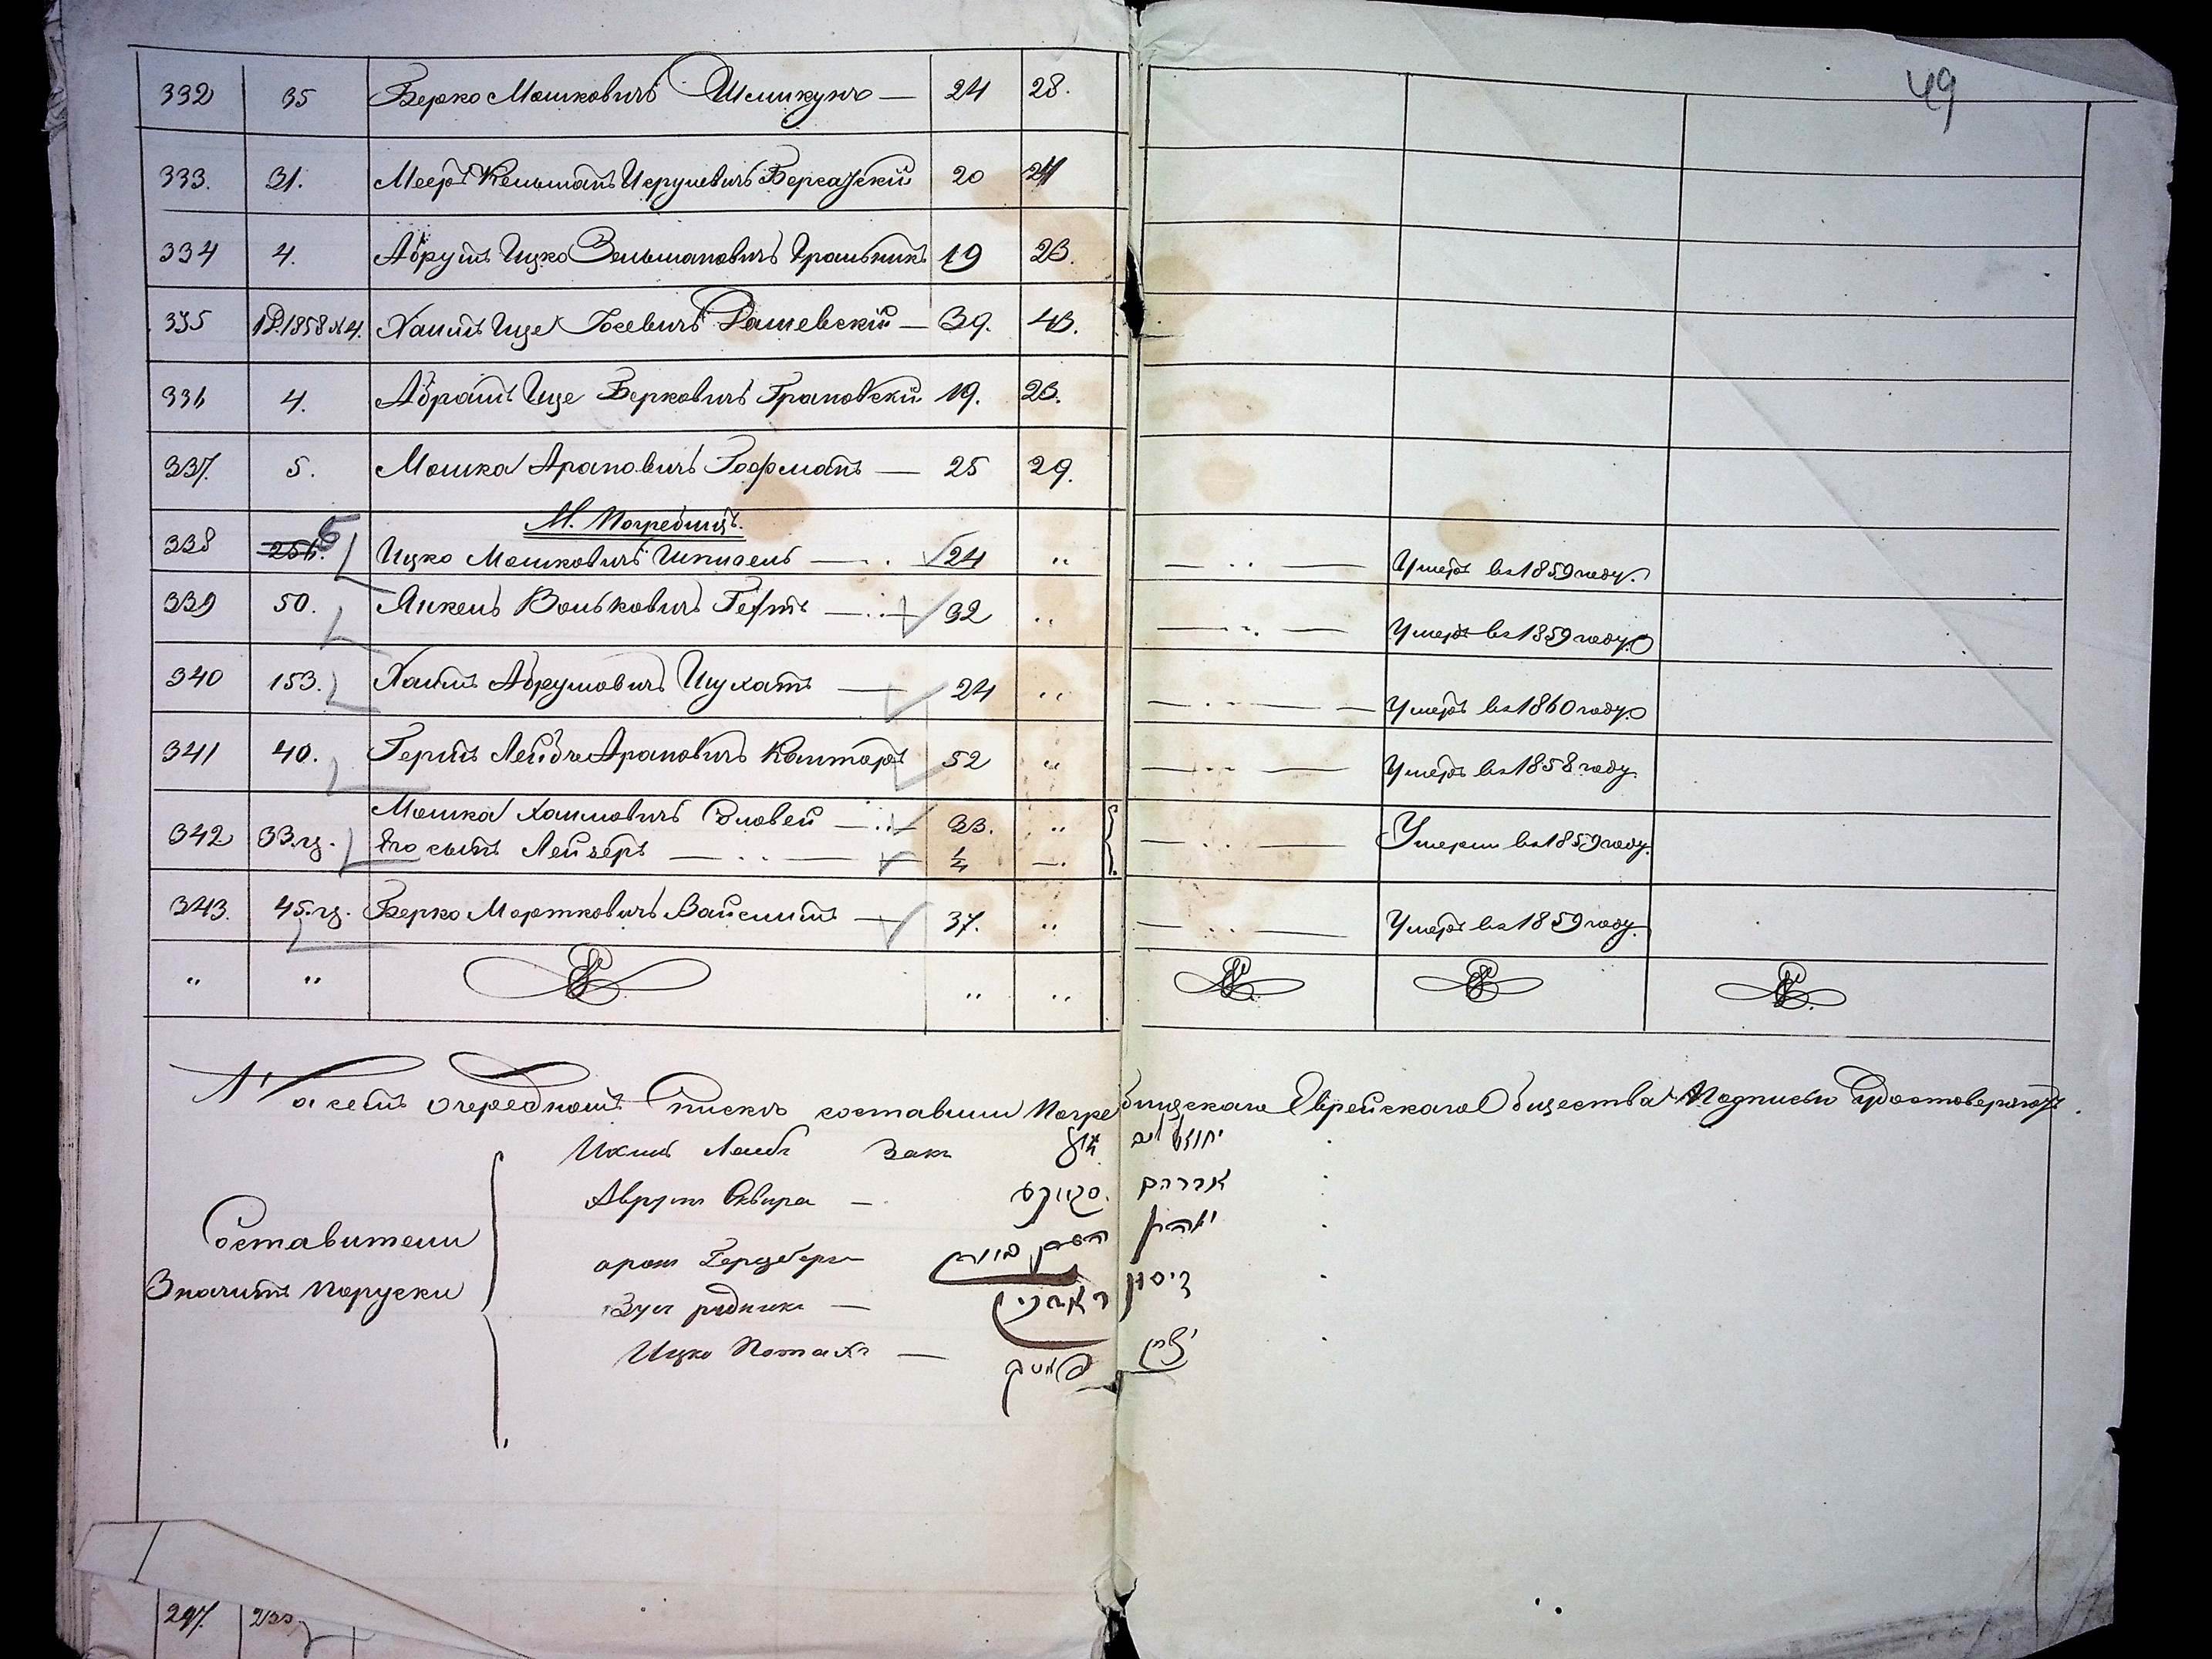 49
332 35 Берко Мошковичъ Шмилкунъ — 24 28.
333. 31. Мееръ Кельманъ Исрулевичъ Бергазскій 20 24
334 4. Абрумъ Ицко Зельмановичъ 19 23.
335 1858 №4. Хаимъ Ице Іосевичъ Рашевскій — 39. 43.
336 4. Абрамъ Ице Берковичъ Грановскій 19. 23.
337. 5. Мошка Ароновичъ Гофманъ — 25 29.
М. Погребищъ.
338 256. 5 Ицко Мошковичъ Шпигель — 24 " — " — Умеръ въ 1859 году.
339 50. Янкель Вольковичъ — 32 " — " — Умеръ въ 1859 году.
340 153. Хаимъ Абрумовичъ Шухатъ — 24 " — " — Умеръ въ 1860 году.
341 40. Гершъ Лейба Ароновичъ Канторъ 52 " — " — Умеръ въ 1858 году.
342 33.ц. Мошка Хаимовичъ Словей — 33. " — " — Умерли въ 1859 году.
Его сынъ Лейзеръ — 1/4 —
343. 45.ц. Берко Мортковичъ Вайсманъ — 37. " — " — Умеръ въ 1859 году.
" " " "
Къ семъ очередномъ Списке составили Погребищскаго Еврейскаго Общества Подписью Удостоверяютъ.
Составители
Значитъ Поруски
Ихилъ Лейб Закъ זאק
Аврум Сквира — סקווירע אברהם
арон Герцберг אהרן
Зуся рудник — זיסי
Ицко Потахъ — פאטאך יצחק
297. 233